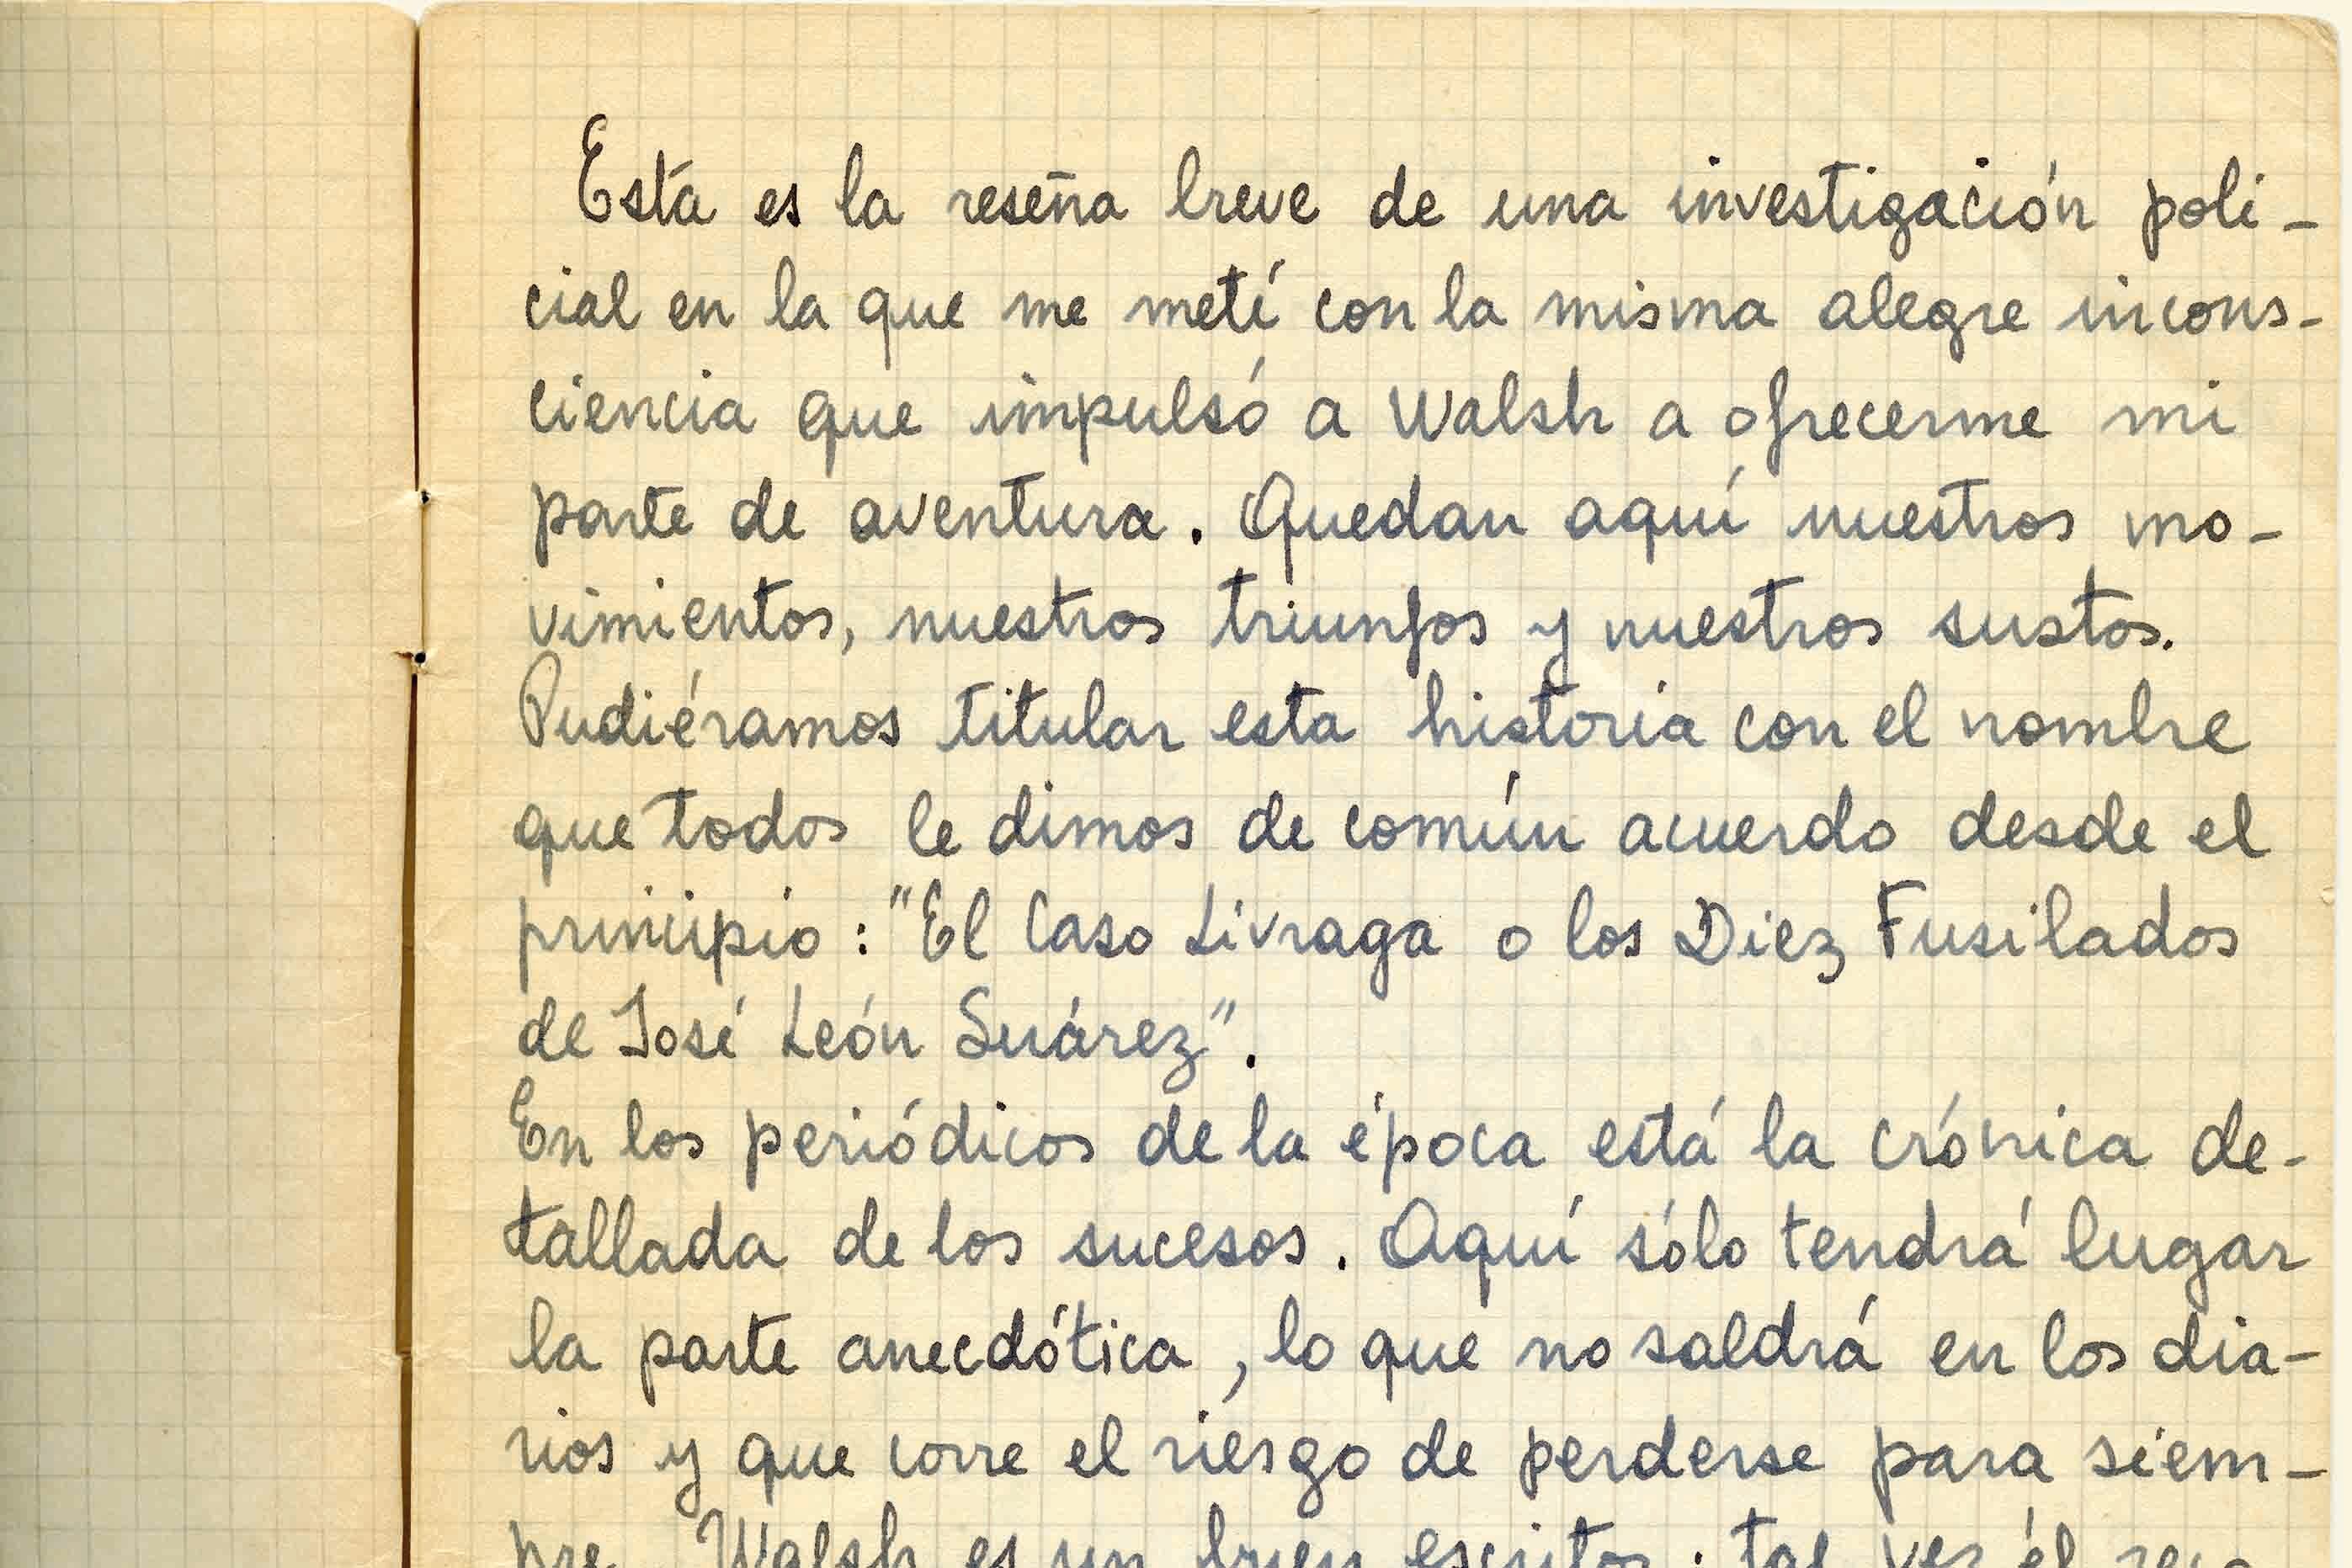 Esta es la reseña breve de una investigación poli-
cial en la que me metí con la misma alegre incons-
ciencia que impulsó a Walsh a ofrecerme mi
parte de aventura. Quedan aquí nuestros mo-
vimientos, nuestros triunfos y nuestros sustos.
Pudiéramos titular esta historia con el nombre
que todos le dimos de común acuerdo desde el
principio: "El Caso Livraga o los Diez Fusilados
de José León Suárez".
En los periódicos de la época está la crónica de-
tallada de los sucesos. Aquí sólo tendrá lugar
la parte anecdótica, lo que no saldrá en los dia-
rios y que corre el riesgo de perderse para siem-
pre. Walsh es un buen escritor; tal vez él